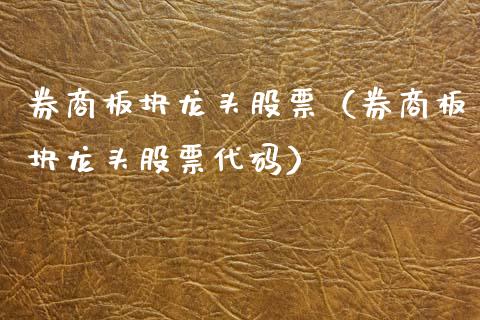 券商板块龙头股票（券商板
块龙头股票代码）